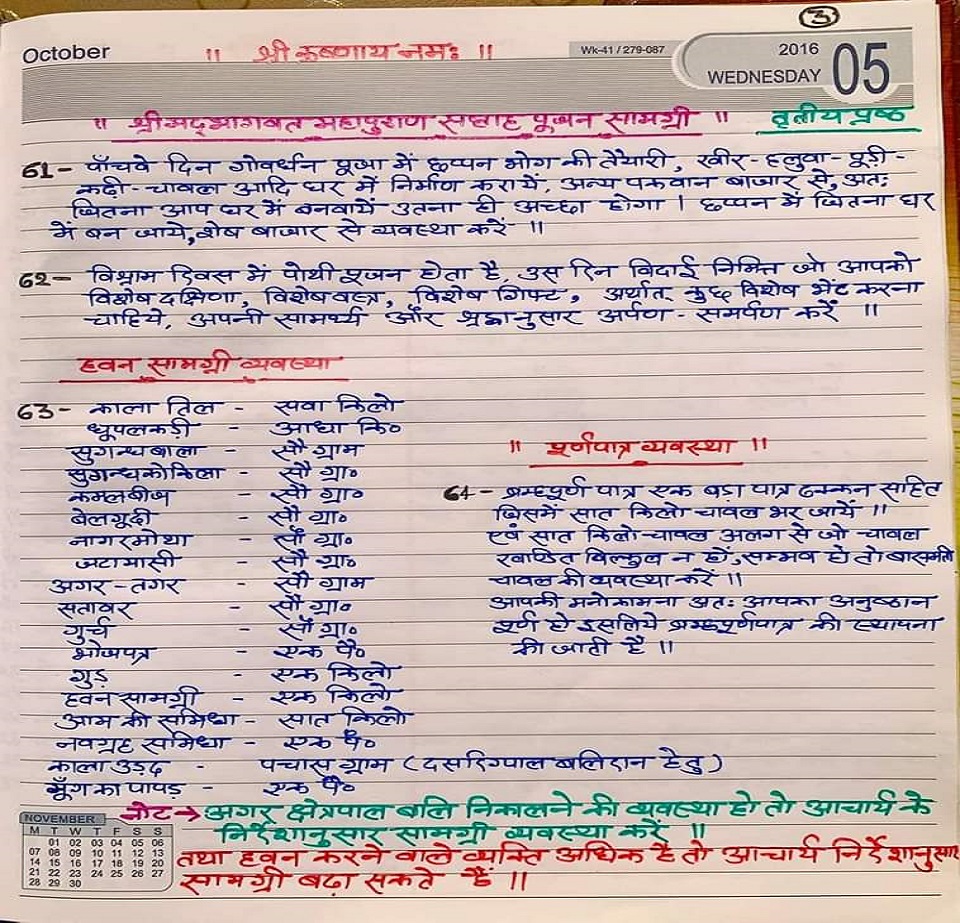 3
October
॥ श्री कृष्णाय नमः ॥
Wk-41 / 279-087
2016
WEDNESDAY
05
॥ श्रीमद्भागवत महापुराण सप्ताह पूजन सामग्री ॥ तृतीय प्रष्ठ
61- पाँचवे दिन गोवर्धन पूजा में छप्पन भोग की तैयारी, खीर-हलुवा-पूड़ी-
कढ़ी-चावल आदि घर में निर्माण करायें, अन्य पकवान बाजार से, अतः
जितना आप घर में बनवायें उतना ही अच्छा होगा। छप्पन में जितना घर
में बन जाये, शेष बाजार से व्यवस्था करें ॥
62- विश्राम दिवस में पोथी पूजन होता है, उस दिन विदाई निमित्त जो आपको
विशेष दक्षिणा, विशेष वस्त्र, विशेष गिफ्ट, अर्थात् कुछ विशेष भेंट करना
चाहिये, अपनी सामर्थ्य और श्रद्धानुसार अर्पण-समर्पण करें ॥
हवन सामग्री व्यवस्था
63- काला तिल - सवा किलो
धूपलकड़ी - आधा कि॰
सुगन्धबाला - सौ ग्राम
सुगन्धकोकिला - सौ ग्रा॰
कमलबीज - सौ ग्रा॰
बेलगूदी - सौ ग्रा॰
नागरमोथा - सौ ग्रा॰
जटामासी - सौ ग्रा॰
अगर-तगर - सौ ग्राम
सतावर - सौ ग्रा॰
गुर्च - सौ ग्रा॰
भोजपत्र - एक पै॰
गुड़ - एक किलो
हवन सामग्री - एक किलो
आम की समिधा - सात किलो
नवग्रह समिधा - एक पै॰
काला उड़द - पचास ग्राम (दसदिग्पाल बलिदान हेतु)
मूँग का पापड़ - एक पै॰
॥ पूर्णपात्र व्यवस्था ॥
64- ब्रम्हपूर्ण पात्र एक बड़ा पात्र ढक्कन सहित
जिसमें सात किलो चावल भर जायें ॥
एवं सात किलो चावल अलग से जो चावल
खण्डित बिल्कुल न हों, सम्भव हो तो बासमती
चावल की व्यवस्था करें ॥
आपकी मनोकामना अतः आपका अनुष्ठान
पूर्ण हो इसलिये ब्रम्हपूर्णपात्र की स्थापना
की जाती है ॥
नोट → अगर क्षेत्रपाल बलि निकालने की व्यवस्था हो तो आचार्य के
निर्देशानुसार सामग्री व्यवस्था करें ॥
तथा हवन करने वाले व्यक्ति अधिक है तो आचार्य निर्देशानुसार
सामग्री बढ़ा सकते हैं ॥
NOVEMBER
M T W T F S S
01 02 03 04 05 06
07 08 09 10 11 12 13
14 15 16 17 18 19 20
21 22 23 24 25 26 27
28 29 30